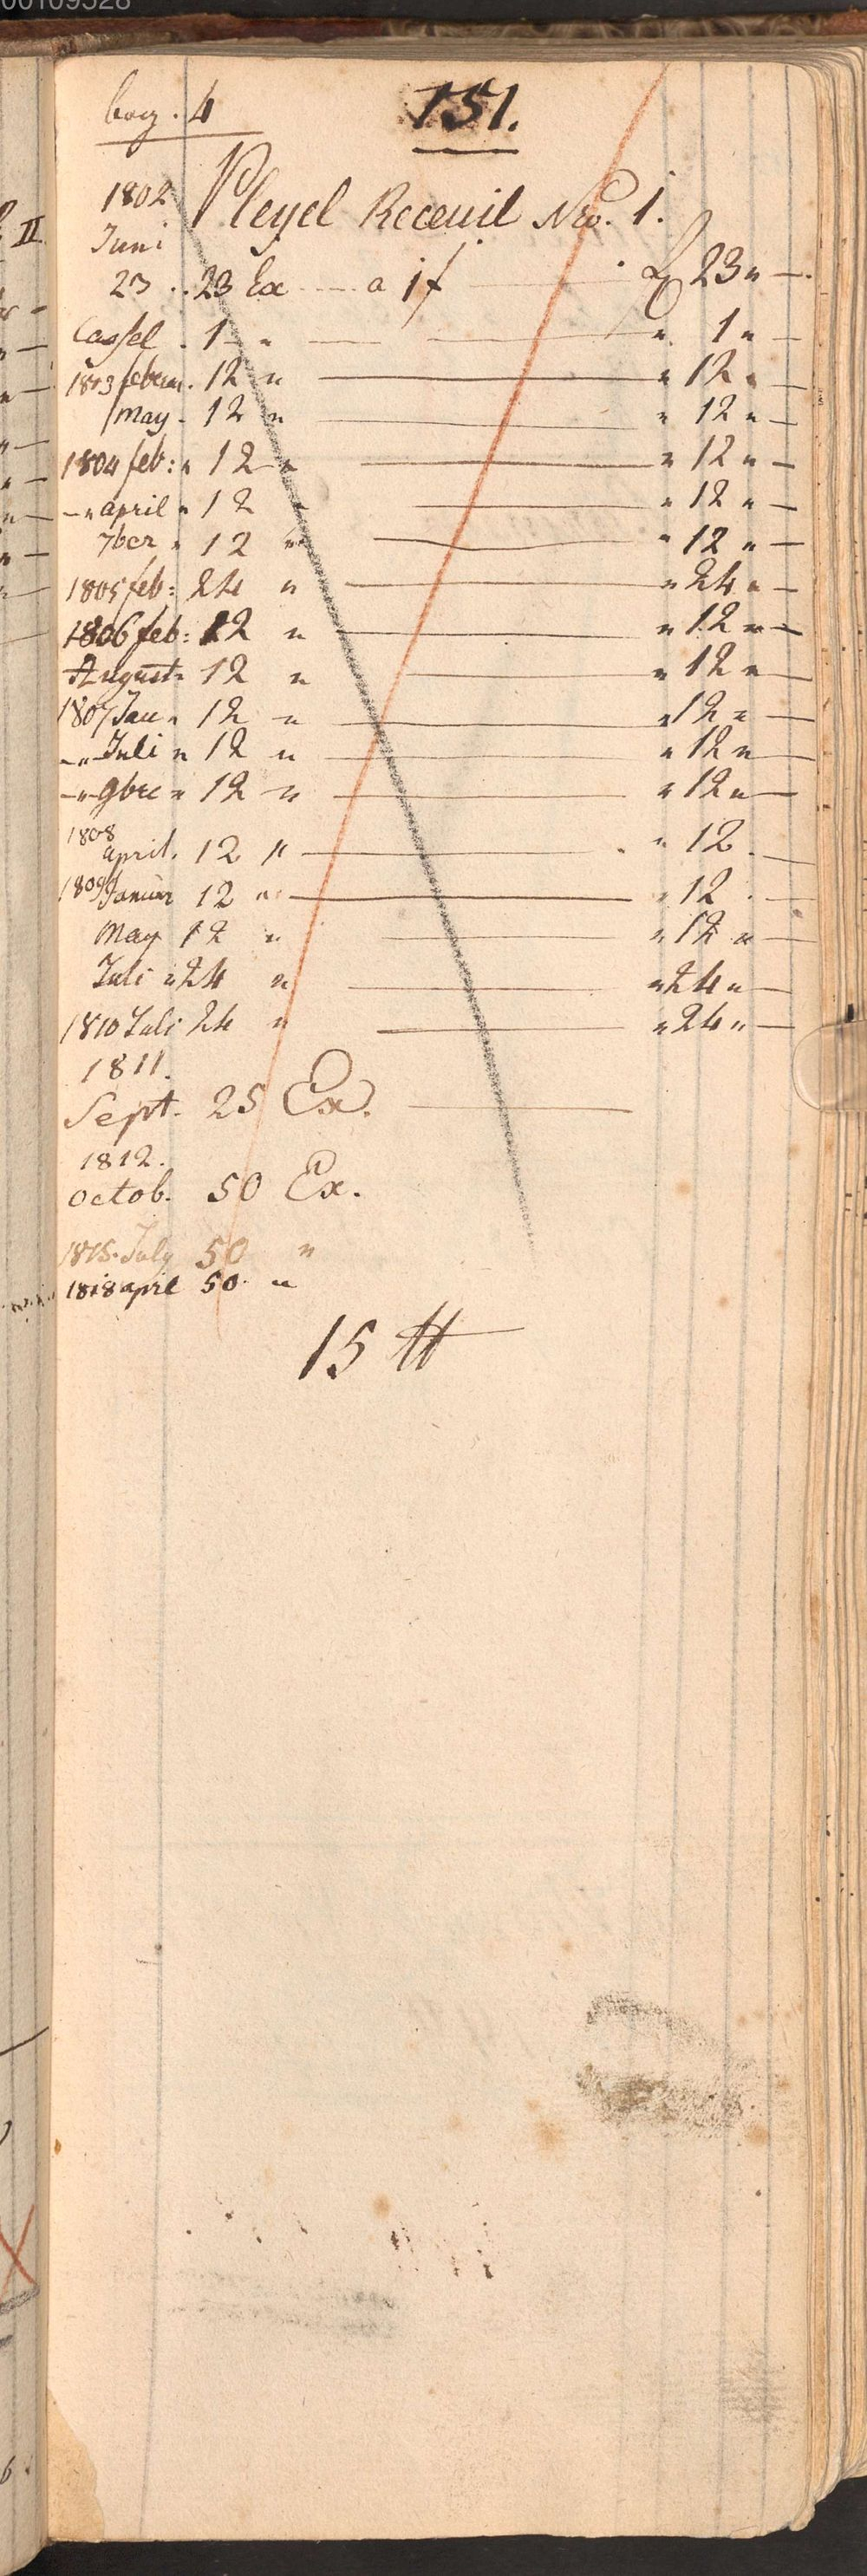 00109528
bog. 4
151.
1802 Pleyel Receuil Nro. 1.
Juni
23 . . 23 Ex — a 1 f . 23 " —
Cassel . 1 " — " 1 " —
1803 februar. 12 " — " 12 " —
May . 12 " — " 12 " —
1804 feb: " 12 " — " 12 " —
— " april " 12 " — " 12 " —
7ber " 12 " — " 12 " —
1805 feb: 24 " — " 24 " —
1806 feb: 12 " — " 12 " —
August " 12 " — " 12 " —
1807 Jan " 12 " — " 12 " —
— " Juli " 12 " — " 12 " —
— " 9bre " 12 " — " 12 " —
1808
april. 12 " — " 12 . —
1809 Januar 12 " — " 12 . —
May 12 " — " 12 " —
Juli " 24 " — " 24 " —
1810 Juli 24 " — " 24 " —
1811.
Sept. 25 Ex. —
1812.
octob. 50 Ex.
1815. July 50 "
1818 april 50. "
15 tt